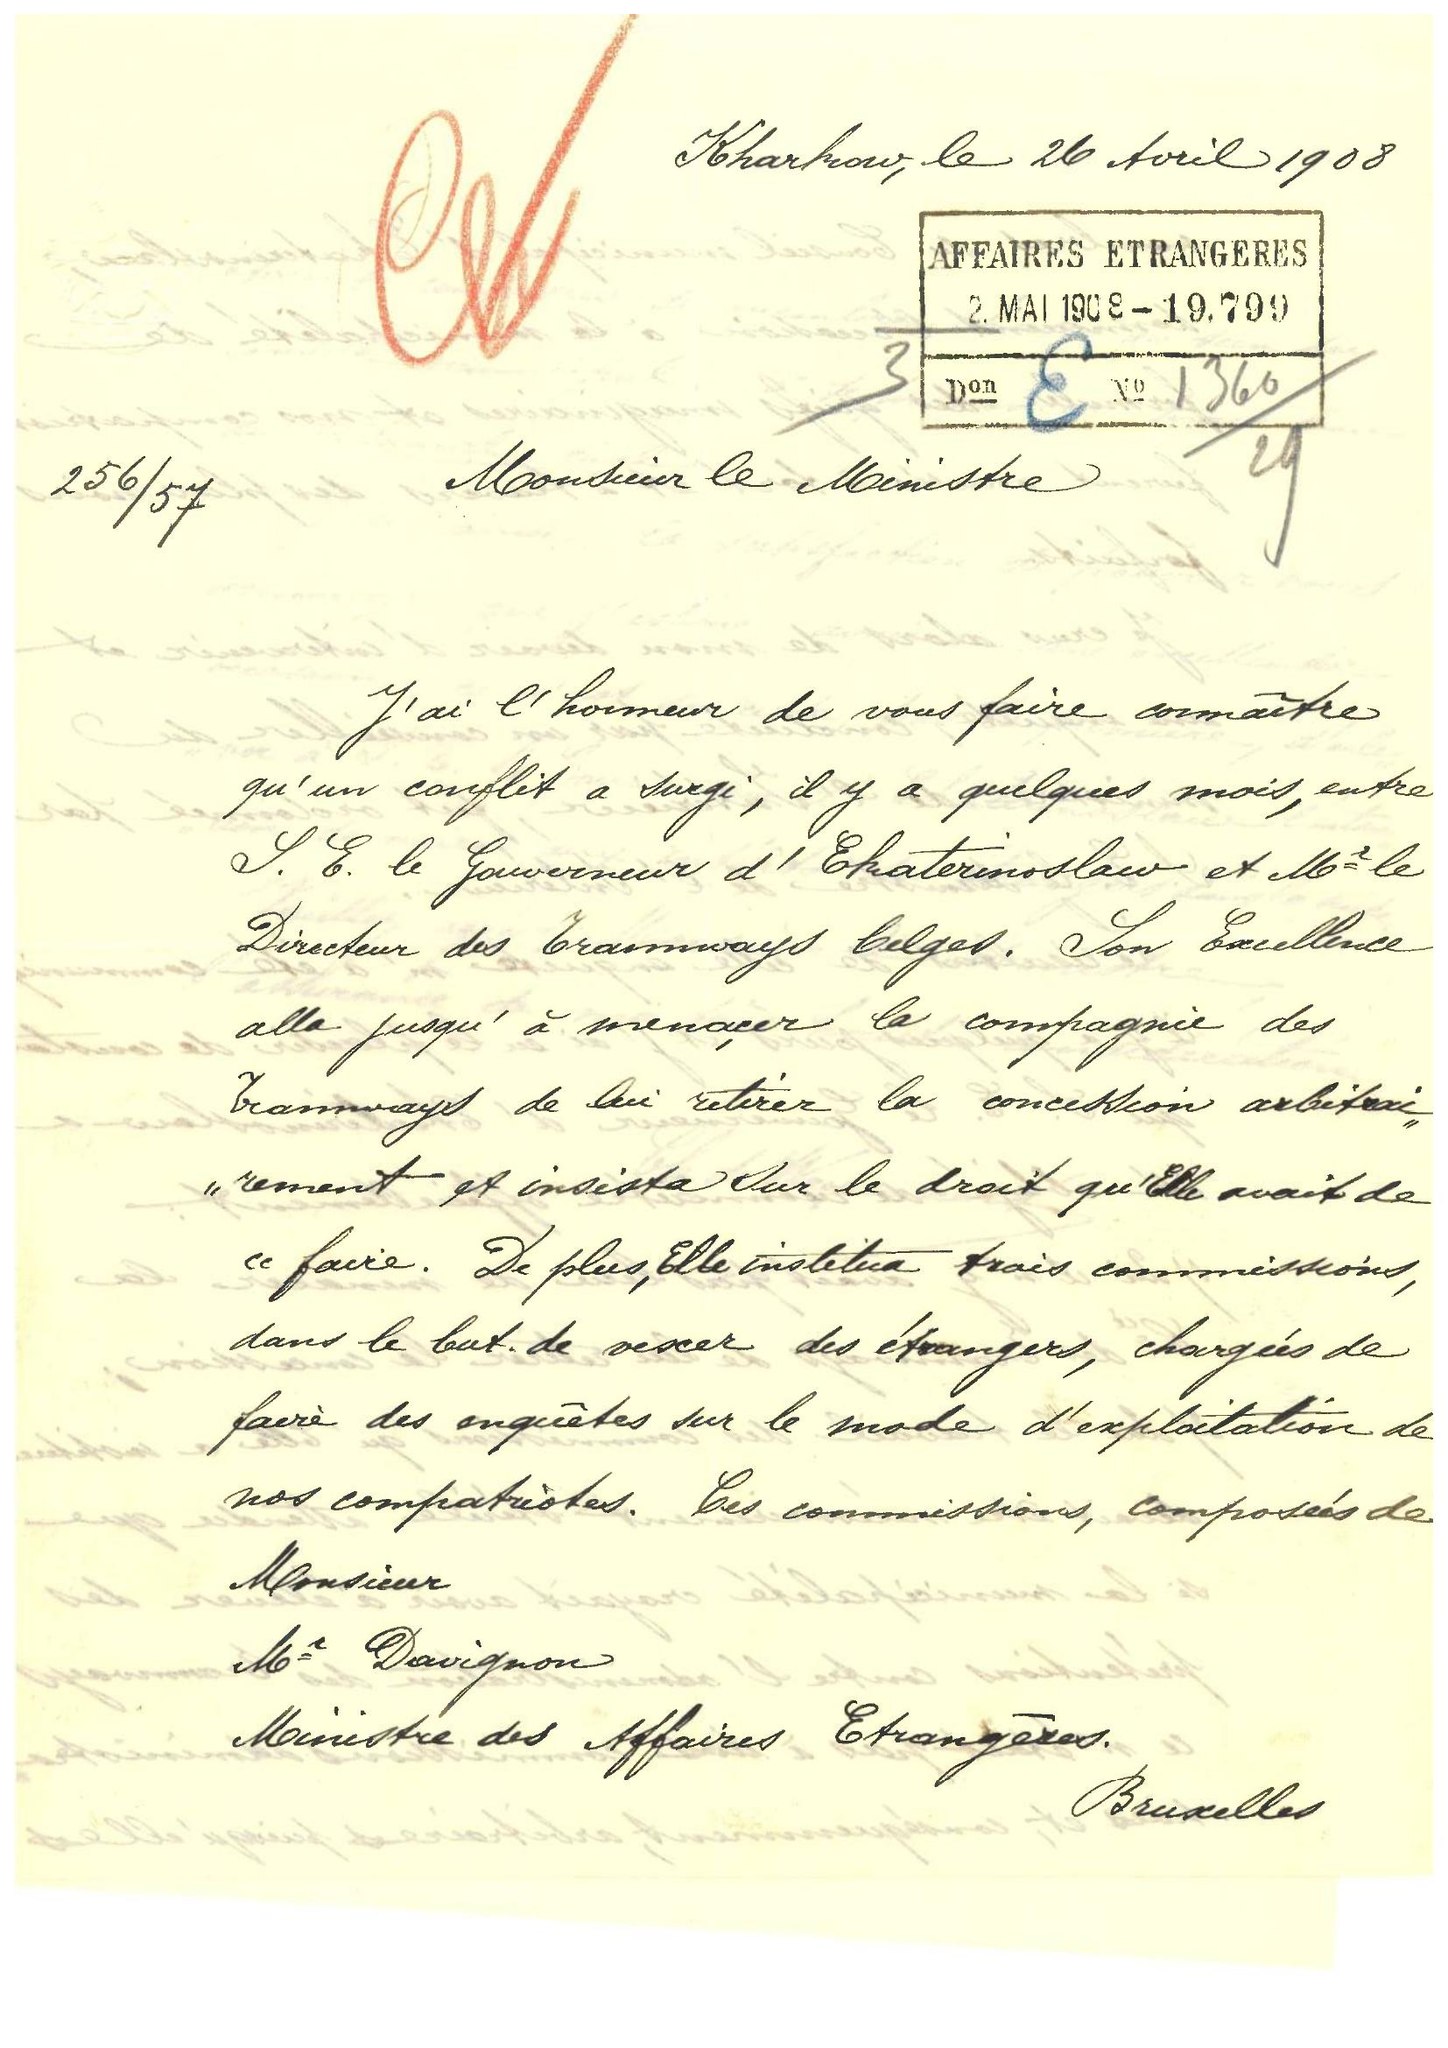 Kharkow, le 26 Avril 1908
AFFAIRES ETRANGERES
2. MAI 1908 - 19.799
3
Don E No 1360
29
256/57
Monsieur le Ministre
J'ai l'honneur de vous faire connaître
qu'un conflit a surgi, il y a quelques mois, entre
S. E. le Gouverneur d'Ekaterinoslaw et Mr le
Directeur des Tramways belges. Son Excellence
alla jusqu'à menaçer la compagnie des
Tramways de lui retirer la concession arbitrai„
„rement et insista sur le droit qu'Elle avait de
ce faire. De plus, Elle institua trois commissions,
dans le but de vexer des étrangers, chargées de
faire des enquêtes sur le mode d'exploitation de
nos compatriotes. Ces commissions, composées de
Monsieur
Mr Davignon
Ministre des Affaires Etrangères.
Bruxelles